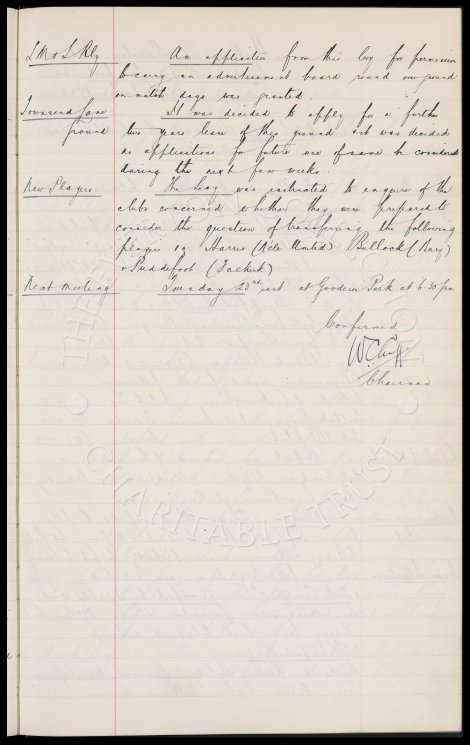 L M & S Rly An application from this Coy for permission
to carry an advertisement board round our ground
on match days was granted.
Townsend Lane It was decided to apply for a further
ground two years lease of this ground & it was decided
as applications for future use of same be considered
during the next few weeks.
New Players The Secy was instructed to enquire of the
clubs concerned whether they are prepared to
consider the question of transferring the following
players eg Harris ( United) Bullock (Bury)
& Puddefoot (Falkirk)
Next meeting Tuesday 23rd inst at Goodison Park at 6.30 pm
Confirmed
W C Cuff
Chairman
THE
CHARITABLE TRUST